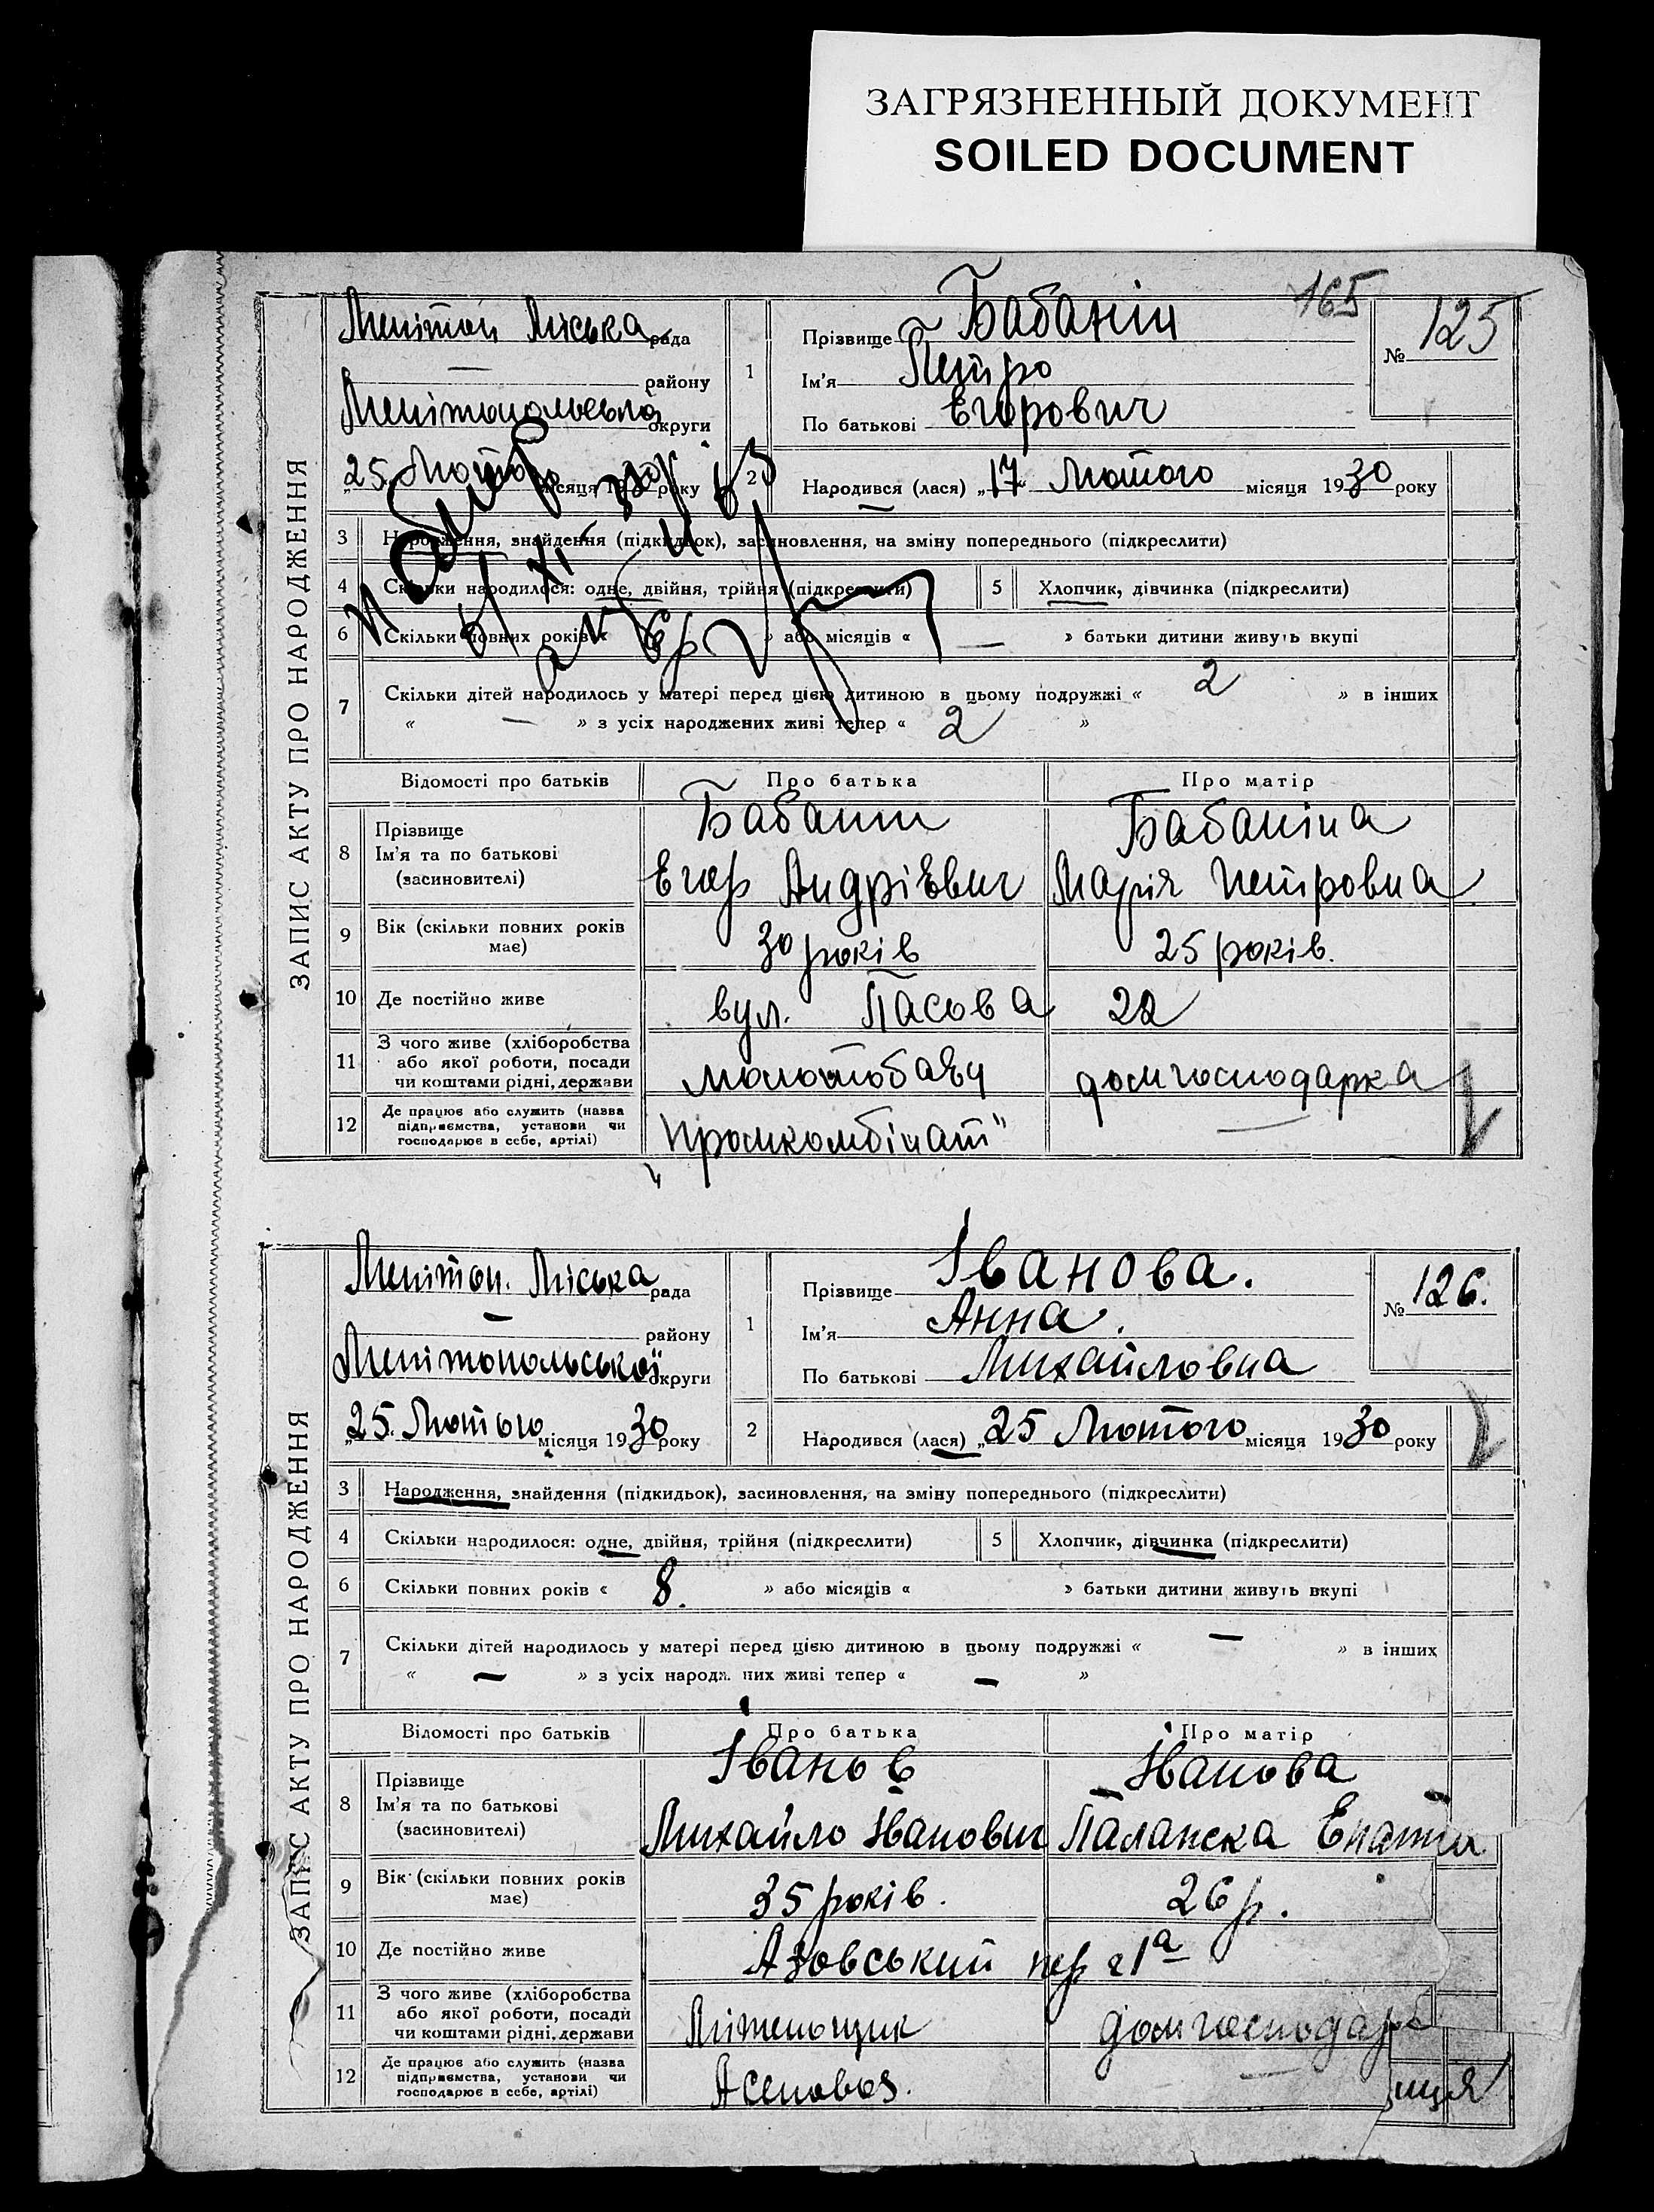 ЗАГРЯЗНЕННЫЙ ДОКУМЕНТ
SOILED DOCUMENT
165
ЗАПИС АКТУ ПРО НАРОДЖЕННЯ
Мелітоп. Міська рада
— району
Мелітопольської округи
„25. Лютого місяця 1930 року
1
Прізвище Бабанін
Ім'я Петро
По батькові Егорович
№ 125
2
Народився (лася) „17" Лютого місяця 1930 року
3 Народження, знайдення (підкидьок), засиновлення, на зміну попереднього (підкреслити)
4 Скільки народилося: одне, двійня, трійня (підкреслити) 5 Хлопчик, дівчинка (підкреслити)
6 Скільки повних років « 6р » або місяців « — » батьки дитини живуть вкупі
7 Скільки дітей народилось у матері перед цією дитиною в цьому подружжі « 2 » в інших
« — » з усіх народжених живі тепер « 2 »
Відомості про батьків Про батька Про матір
8 Прізвище Ім'я та по батькові (засиновителі)
Бабанин Бабаніна
Егор Андріевич Марія Петровна
9 Вік (скільки повних років має) 30 років 25 років.
10 Де постійно живе вул. Пасова 22
11 З чого живе (хліборобства або якої роботи, посади чи коштами рідні, держави молотобаец домгосподарка
12 Де працює або служить (назва підприємства, установи чи господарює в себе, артілі) „Промкомбінат" —
ЗАПИС АКТУ ПРО НАРОДЖЕННЯ
Мелітоп. Міська рада
— району
Мелітопольської округи
„25. Лютого місяця 1930 року
1
Прізвище Іванова.
Ім'я Анна.
По батькові Михайловна
№ 126.
2
Народився (лася) „25 Лютого місяця 1930 року
3 Народження, знайдення (підкидьок), засиновлення, на зміну попереднього (підкреслити)
4 Скільки народилося: одне, двійня, трійня (підкреслити) 5 Хлопчик, дівчинка (підкреслити)
6 Скільки повних років « 8. » або місяців « » батьки дитини живуть вкупі
7 Скільки дітей народилось у матері перед цією дитиною в цьому подружжі « — » в інших
« — » з усіх народж. них живі тепер « — »
Відомості про батьків Про батька Про матір
8 Прізвище Ім'я та по батькові (засиновителі)
Іванов Іванова
Михайло Іванович Палажка
9 Вік (скільки повних років має) 35 років. 26 р.
10 Де постійно живе Азовський пер 21а
11 З чого живе (хліборобства або якої роботи, посади чи коштами рідні, держави домгосподар
12 Де працює або служить (назва підприємства, установи чи господарює в себе, артілі) —